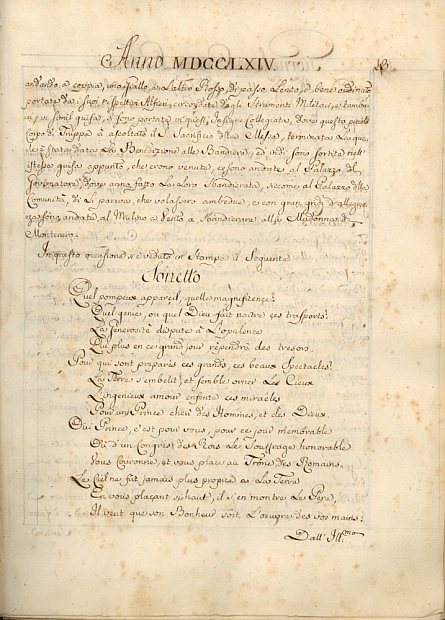 Anno MDCCLXIV. 13
andando a coppia, uno giallo, e l'altro Rosso, di passo Lento, e bene ordinato
portate da i suoi rispettivi Alfieri, circondate dagli Strumenti Militari, e tamburi
in simil guisa, si sono portate in quest' Insigne Collegiata, dove questo piccolo
Corpo di Truppa à ascoltato il S. Sacrificio della Messa, terminata La qua-
le è stata data La Benedizione alle Bandiere, ed indi sono sortite nell'
istessa guisa appunto, che erono venute, e sono andate al Palazzo del
Governatore, dove anno fatto La Loro sbandierata, e come al Palazzo della
Comunità, di Lì pareva, che volassero ambedue, e con gran gridi d'allegrez-
za sono andate al Mulino a Vento a sbandierare alla Madonna di
Montenero.
In questa occasione si è veduto in Stampa il Seguente
Sonetto
Quel pompeux appareil, quelle magnificence!
Quel genie, ou quel Dieu fait naitre ces trasports?
La generosità dispute à L'opulence
A plus en ce grand jour rependra des tresors.
Pour qui sont preparés ces grands, ces beaux Spectacles!
La Terre s'embelit, et semble orner Les Cieux
L'ingenieux amour enfante ces miracles
Pour un Prince cheri des Hommes, et des Dieux.
Oui Prince, c'est pour vous, pour ce jour mémorable
Où d'un Congres des Rois Le Souffrage honorable
Vous Couronne, et vous place au Trône des Romains.
Le Ciel ne fut jamais plus propice à La Terre
En vous plaçant si haut, il s'en montre Le Père,
Il veut que son Bonheur soit L'oeuvre des vos mains.
Dall' Ill.mo